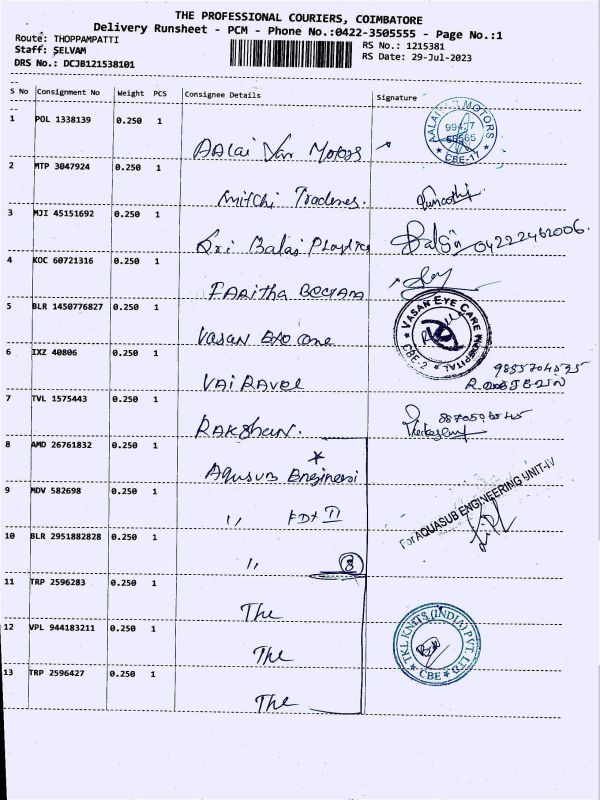 THE PROFESSIONAL COURIERS, COIMBATORE
Delivery Runsheet - PCM - Phone No.:0422-3505555 - Page No.:1
Route: THOPPAMPATTI
Staff: SELVAM
DRS No.: DCJB121538101
RS No.: 1215381
RS Date: 29-Jul-2023
S No Consignment No Weight PCS Consignee Details Signature
1 POL 1338139 0.250 1
AALai Van Motors
AALAI MOTORS
CBE-17
2 MTP 3047924 0.250 1
Mitchi Traderes.
3 MJI 45151692 0.250 1
Sri Balaji Plastics 04222462006.
4 KOC 60721316 0.250 1
FARitha Beegam
5 BLR 1450776827 0.250 1
Vasan Eye care
VASAN EYE CARE HOSPITAL
CBE-2
6 IXZ 40806 0.250 1
VAIRAVEL
9855704535
7 TVL 1575443 0.250 1
RAKShan.
8 AMD 26761832 0.250 1
Aqusub Engineesi
9 MDV 582698 0.250 1
,, II
For AQUASUB ENGINEERING UNIT-IV
10 BLR 2951882828 0.250 1
,, 3
11 TRP 2596283 0.250 1
The
12 VPL 944183211 0.250 1
The
TKL KNITS (INDIA) PVT. LTD.
CBE
13 TRP 2596427 0.250 1
The